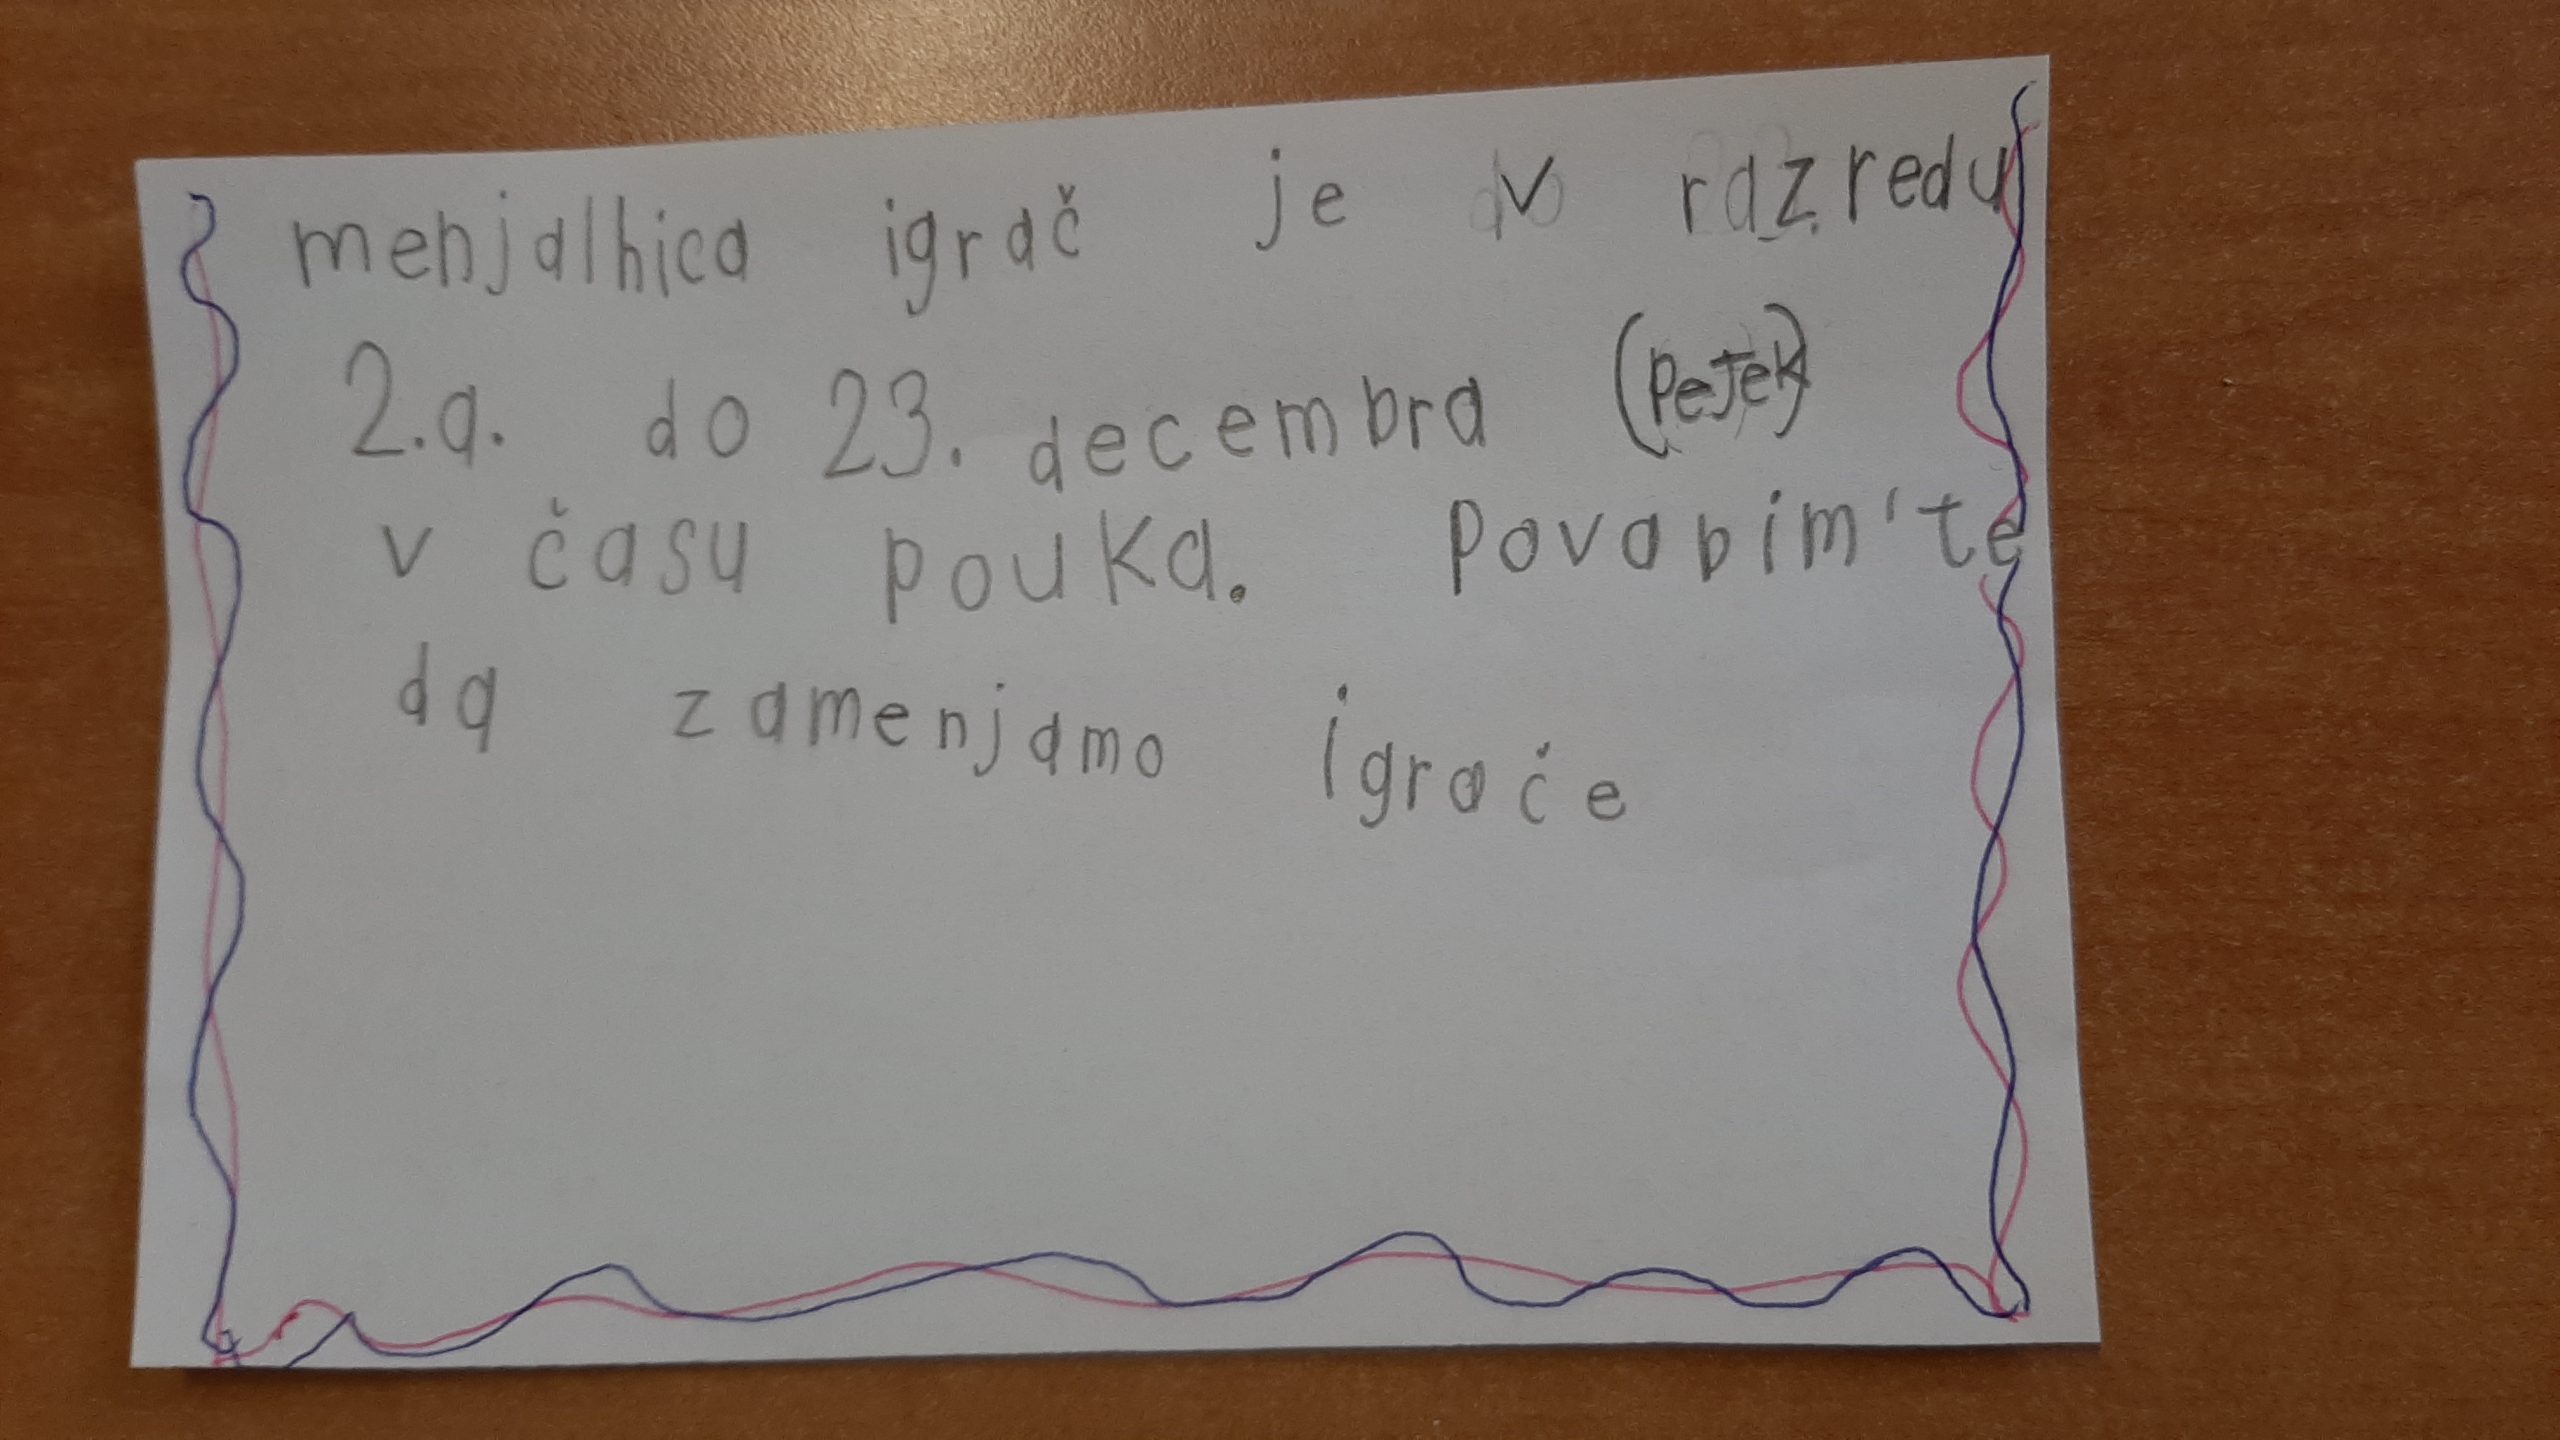 menjalnica igrač je v razredu
2.a. do 23. decembra (Petek)
v času pouka. Povabim'te
da zamenjamo igrače